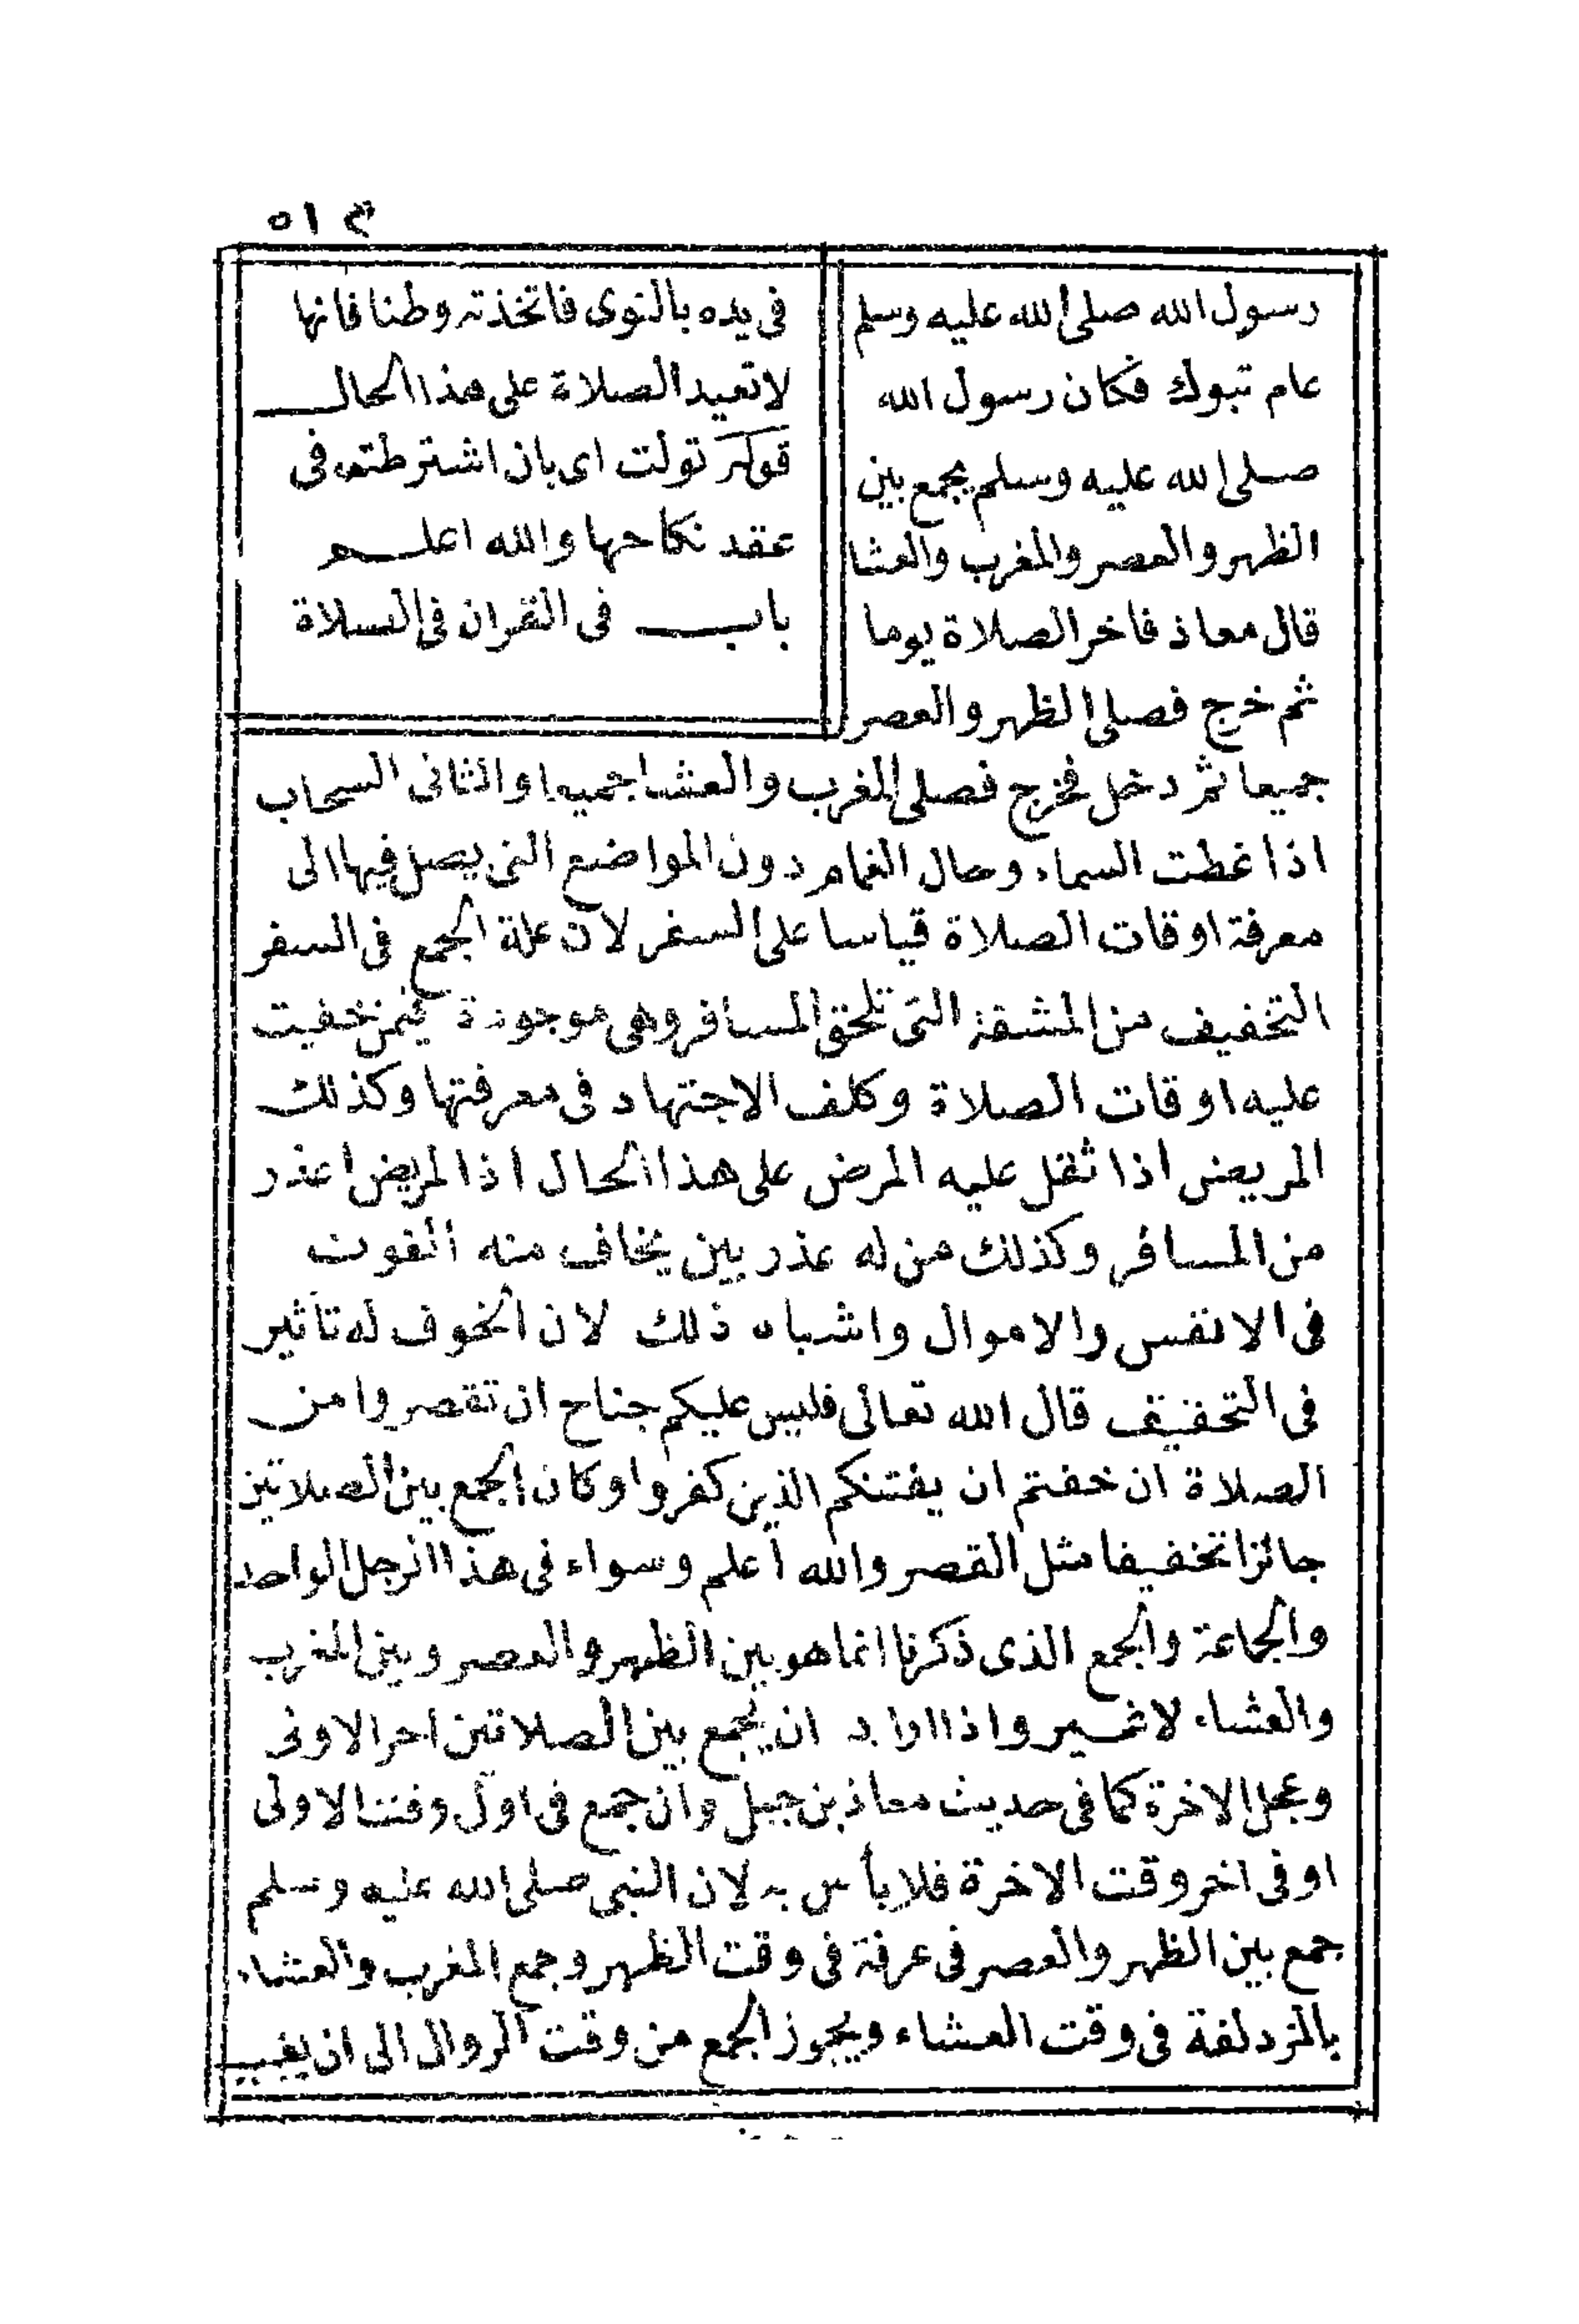 ٥١٣
رسول الله صلى الله عليه وسلم
عام تبوك فكان رسول الله
صلى الله عليه وسلم يجمع بين
الظهر والعصر والمغرب والعشا
قال معاذ فاخر الصلاة يوما
ثم خرج فصلى الظهر والعصر
في يده بالنوى فاتخذته وطنا فانها
لا تعيد الصلاة على هذا الحال
قوله تولت اى بان اشترطته فى
عقد نكاحها والله اعلم
باب فى القران فى السلاة
جميعا ثم دخل فخرج فصلى المغرب والعشا جميعا والثانى السحاب
اذا غطت السماء وحال الغمام دون المواضع التى يصل فيها الى
معرفة اوقات الصلاة قياسا على السفر لان علة الجمع فى السفر
التخفيف من المشقة التى تلحق المسافر وهى موجودة فيمن خفيت
عليه اوقات الصلاة وكلف الاجتهاد فى معرفتها وكذلك
المريض اذا ثقل عليه المرض على هذا الحال اذا لمريض اعذر
من المسافر وكذلك من له عذر بين يخاف منه الفوت
فى الانفس والاموال واشباه ذلك لان الخوف له تأثير
فى التخفيف قال الله تعالى فليس عليكم جناح ان تقصروا من
الصلاة ان خفتم ان يفتنكم الذين كفروا وكان الجمع بين الصلاتين
جائزا تخفيفا مثل القصر والله أعلم وسواء فى هذا الرجل الواحد
والجماعة والجمع الذى ذكرنا انما هو بين الظهر والعصر وبين المغرب
والعشاء لا غير واذا اراد ان يجمع بين الصلاتين اخر الاولى
وعجل الاخرة كما فى حديث معاذ بن جبل وان جمع فى اول وقت الاولى
او فى اخر وقت الاخرة فلا بأس به لان النبى صلى الله عليه وسلم
جمع بين الظهر والعصر فى عرفة فى وقت الظهر وجمع المغرب والعشاء
بالمزدلفة فى وقت العشاء ويجوز الجمع من وقت الزوال الى ان يغيب